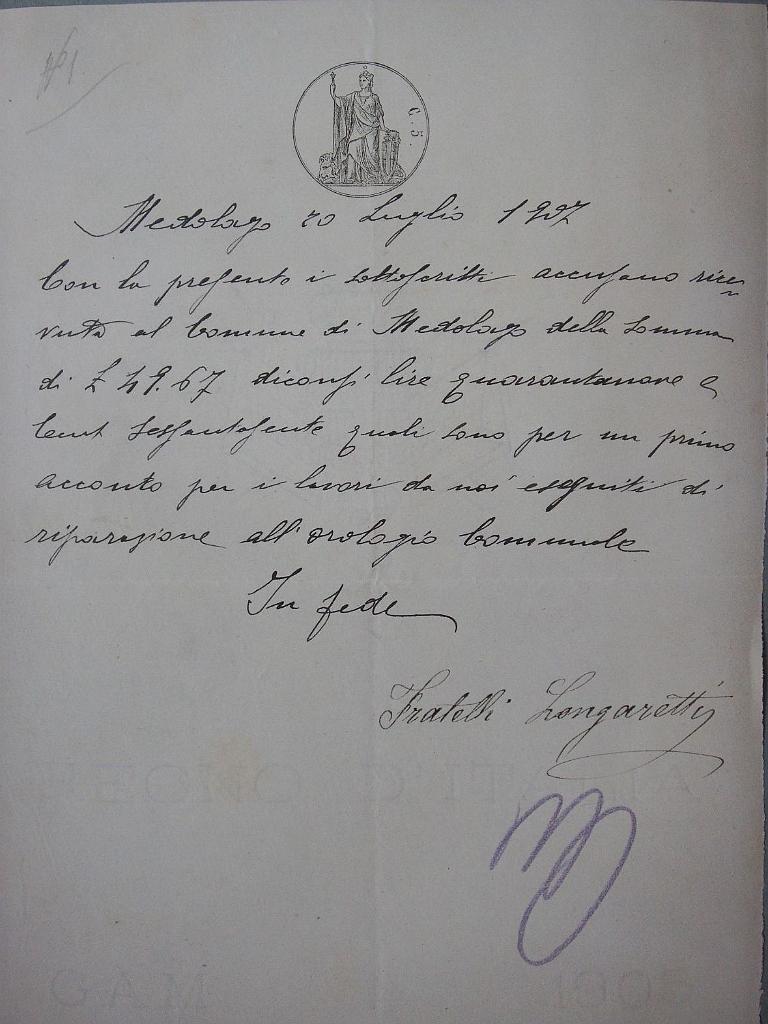 C. 5.
Medolago 20 Luglio 1907
Con la presente i sottoscritti accusano rice=
vuta al Comune di Medolago della somma
di £ 49.67 diconsi lire quarantanove e
Cent sessantasente quali sono per un primo
acconto per i lavori da noi eseguiti di
riparazione all'orologio Comunale
In fede
Fratelli Longaretti